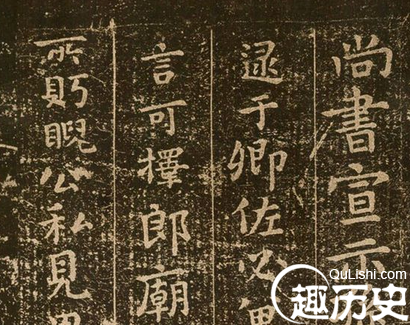 尚書宣示
逮于卿佐必冀
言可擇郎廟
所眄睨公私見異
QuLishi.com
趣历史